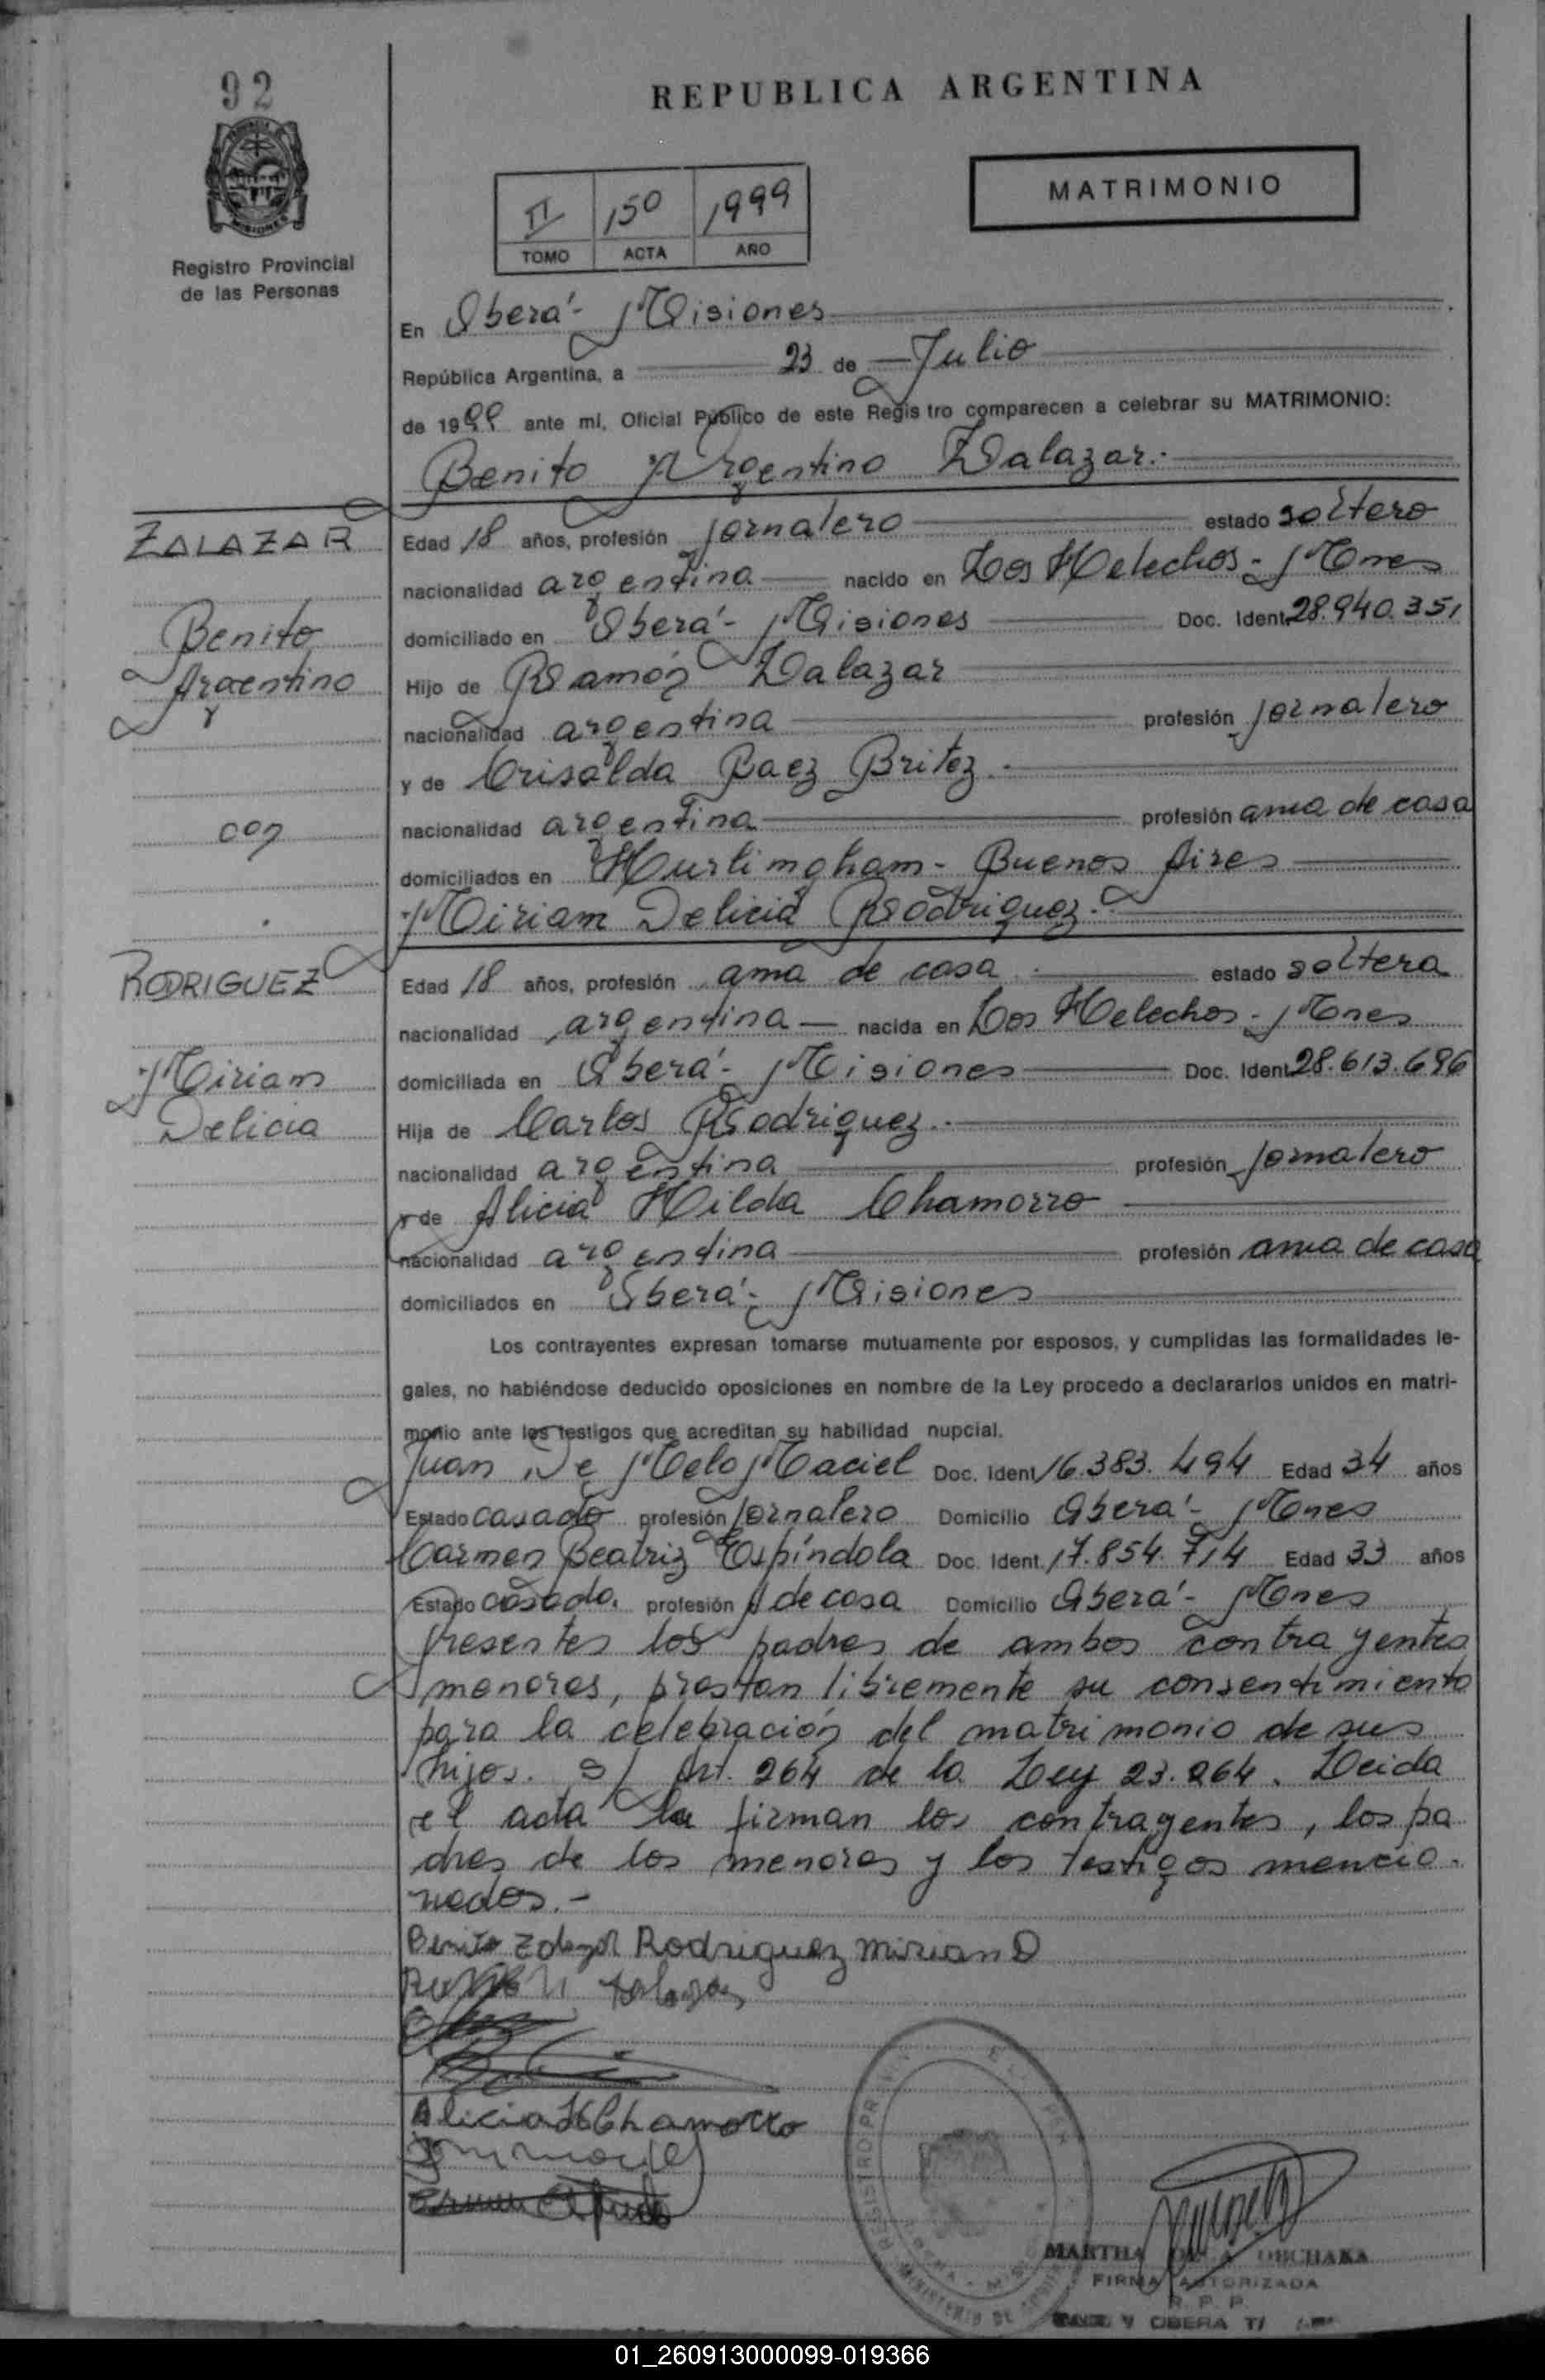 92
REPUBLICA ARGENTINA
MATRIMONIO
II 150 1999
TOMO ACTA AÑO
Registro Provincial
de las Personas
En Oberá - Misiones
República Argentina, a 23 de Julio
de 1999 ante mi, Oficial Público de este Registro comparecen a celebrar su MATRIMONIO:
Benito Argentino Zalazar.-
ZALAZAR
Edad 18 años, profesión jornalero estado soltero
nacionalidad argentina nacido en Los Helechos - Mnes
Benito
domiciliado en Oberá - Misiones Doc. Ident. 28.940.351
Argentino
Hijo de Ramón Zalazar
nacionalidad argentina profesión jornalero
y de Crisalda Baez Britez.-
con
nacionalidad argentina profesión ama de casa
domiciliados en Hurlingham - Buenos Aires
Miriam Delicia Rodriguez.-
RODRIGUEZ
Edad 18 años, profesión ama de casa estado soltera
nacionalidad argentina nacida en Los Helechos - Mnes
Miriam
domiciliada en Oberá - Misiones Doc. Ident. 28.613.696
Delicia
Hija de Carlos Rodriguez.-
nacionalidad argentina profesión jornalero
y de Alicia Hilda Chamorro
nacionalidad argentina profesión ama de casa
domiciliados en Oberá - Misiones
Los contrayentes expresan tomarse mutuamente por esposos, y cumplidas las formalidades le-
gales, no habiéndose deducido oposiciones en nombre de la Ley procedo a declararlos unidos en matri-
monio ante los testigos que acreditan su habilidad nupcial.
Juan De Melo Maciel Doc. Ident. 16.383.494 Edad 34 años
Estado casado profesión jornalero Domicilio Oberá - Mnes
Carmen Beatriz Espíndola Doc. Ident. 17.854.714 Edad 33 años
Estado casada. profesión A de casa Domicilio Oberá - Mnes
Presentes los padres de ambos contrayentes
menores, prestan libremente su consentimiento
para la celebración del matrimonio de sus
hijos. S/ Art. 264 de la Ley 23.264. Leida
el acta la firman los contrayentes, los pa
dres de los menores y los testigos mencio-
nados.-
Benito Zalazar Rodriguez Mirian D
Alicia H Chamorro
MARTHA
FIRMA AUTORIZADA
R. P. P.
OBERA
01_260913000099-019366